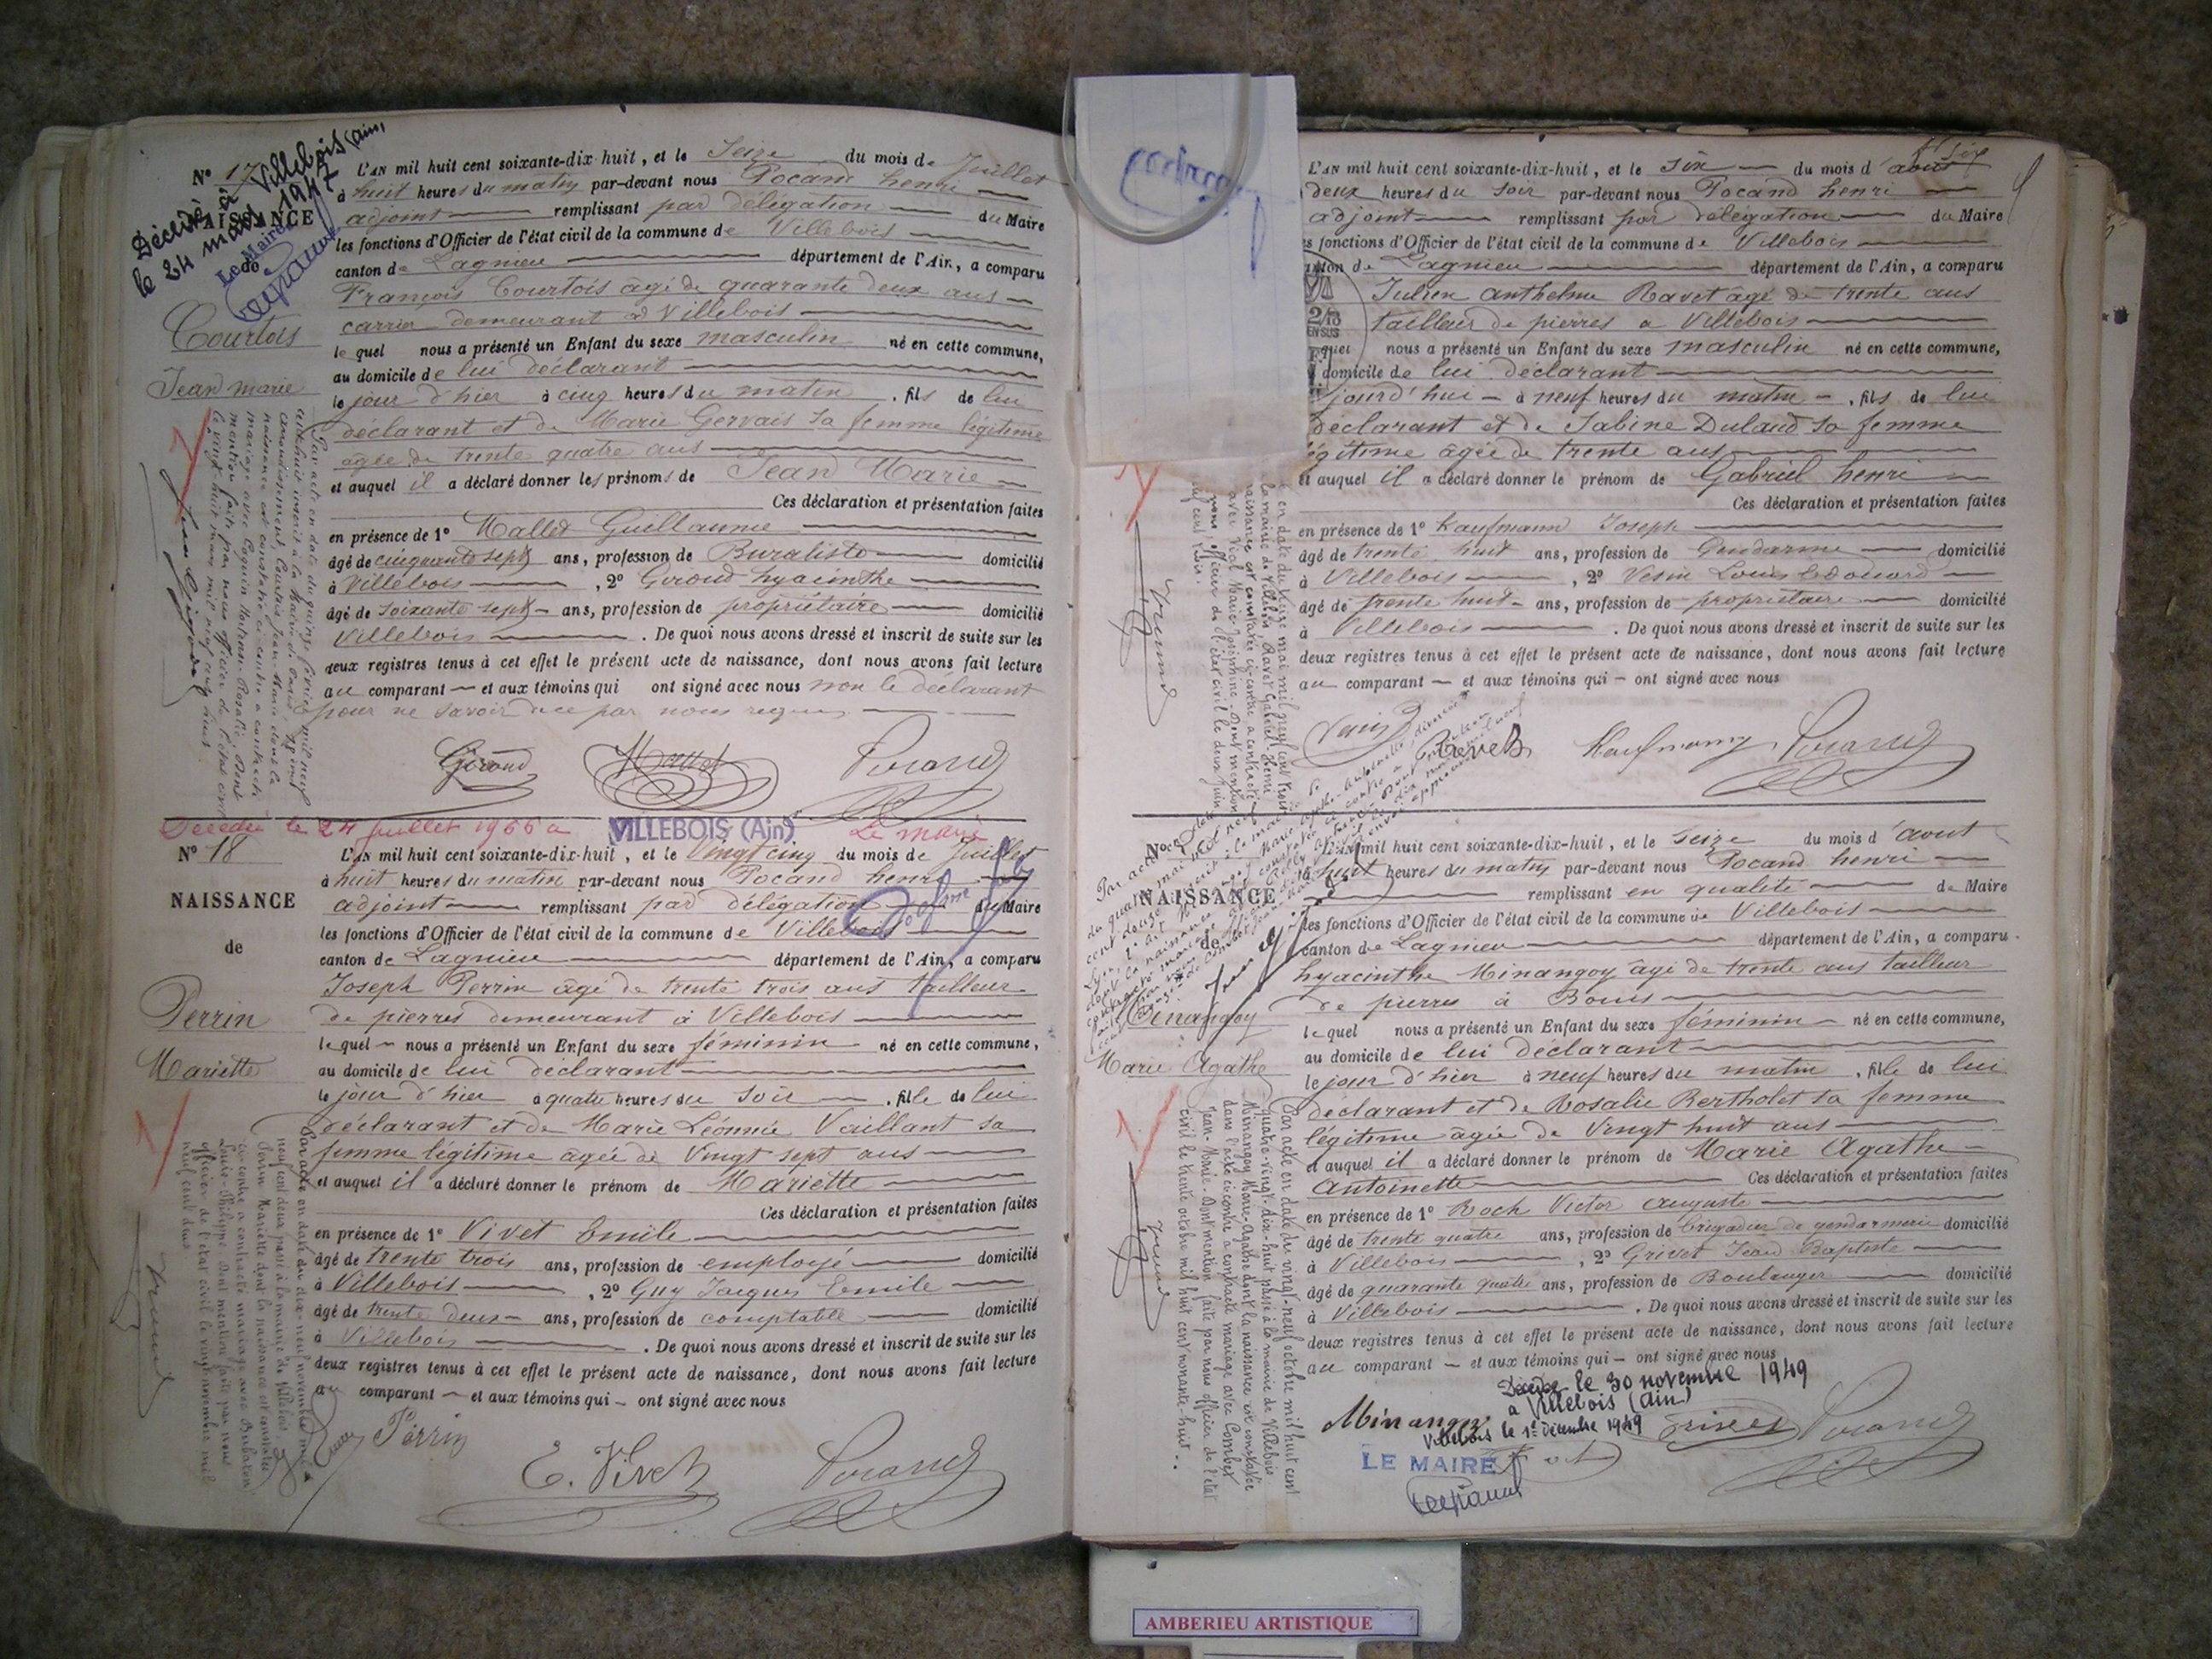 Nº 17
NAISSANCE
de
Courtois
Jean marie
Décédé à Villebois (Ain)
le 24 mars 1947
Le Maire
L'AN mil huit cent soixante-dix-huit, et le Seize du mois de Juillet
à huit heures du matin par-devant nous Pocand henri
adjoint remplissant par délégation du Maire
les fonctions d'Officier de l'état civil de la commune de Villebois
canton de Lagnieu département de l'Ain, a comparu
François Courtois âgé de quarante deux ans
carrier demeurant à Villebois
lequel nous a présenté un Enfant du sexe masculin né en cette commune,
au domicile de lui déclarant
le jour d'hier à cinq heures du matin, fils de lui
déclarant et de Marie Gervais sa femme légitime
âgée de trente quatre ans
et auquel il a déclaré donner les prénoms de Jean Marie
Ces déclaration et présentation faites
en présence de 1º Mallet Guillaume
âgé de cinquante sept ans, profession de Buraliste domicilié
à Villebois, 2º Giroud hyacinthe
âgé de soixante sept ans, profession de propriétaire domicilié
Villebois. De quoi nous avons dressé et inscrit de suite sur les
deux registres tenus à cet effet le présent acte de naissance, dont nous avons fait lecture
au comparant et aux témoins qui ont signé avec nous non le déclarant
pour ne savoir de ce par nous requis
Giroud Mallet Pocand
Décédée le 24 juillet 1966 à VILLEBOIS (Ain) Le maire
Nº 18
NAISSANCE
de
Perrin
Mariette
L'AN mil huit cent soixante-dix-huit, et le Vingt cinq du mois de Juillet
à huit heures du matin par-devant nous Pocand henri
adjoint remplissant par délégation du Maire
les fonctions d'Officier de l'état civil de la commune de Villebois
canton de Lagnieu département de l'Ain, a comparu
Joseph Perrin âgé de trente trois ans tailleur
de pierres demeurant à Villebois
lequel nous a présenté un Enfant du sexe féminin né en cette commune,
au domicile de lui déclarant
le jour d'hier à quatre heures du soir, fille de lui
déclarant et de Marie Léonnie Vaillant sa
femme légitime âgée de Vingt sept ans
et auquel il a déclaré donner le prénom de Mariette
Ces déclaration et présentation faites
en présence de 1º Vivet Emile
âgé de trente trois ans, profession de employé domicilié
à Villebois, 2º Guy Jacques Emile
âgé de trente deux ans, profession de comptable domicilié
à Villebois. De quoi nous avons dressé et inscrit de suite sur les
deux registres tenus à cet effet le présent acte de naissance, dont nous avons fait lecture
au comparant et aux témoins qui ont signé avec nous
Perrin E. Vivet Pocand
L'AN mil huit cent soixante-dix-huit, et le Six du mois d'août
deux heures du soir par-devant nous Pocand henri
adjoint remplissant par délégation du Maire
les fonctions d'Officier de l'état civil de la commune de Villebois
canton de Lagnieu département de l'Ain, a comparu
Julien anthelme Ravet âgé de trente ans
tailleur de pierres à Villebois
quel nous a présenté un Enfant du sexe masculin né en cette commune,
domicile de lui déclarant
jourd'hui à neuf heures du matin, fils de lui
déclarant et de Sabine Duland sa femme
légitime âgée de trente ans
et auquel il a déclaré donner le prénom de Gabriel henri
Ces déclaration et présentation faites
en présence de 1º Kaufmann Joseph
âgé de trente huit ans, profession de Gendarme domicilié
à Villebois, 2º Vesin Louis Edouard
âgé de trente huit ans, profession de propriétaire domicilié
à Villebois. De quoi nous avons dressé et inscrit de suite sur les
deux registres tenus à cet effet le présent acte de naissance, dont nous avons fait lecture
au comparant et aux témoins qui ont signé avec nous
Vesin Ravet Kaufmann Pocand
NAISSANCE
de
Minangoy
Marie Agathe
L'AN mil huit cent soixante-dix-huit, et le Seize du mois d'aout
à huit heures du matin par-devant nous Pocand henri
remplissant en qualité de Maire
les fonctions d'Officier de l'état civil de la commune de Villebois
canton de Lagnieu département de l'Ain, a comparu
hyacinthe Minangoy âgé de trente ans tailleur
de pierres à Bouis
lequel nous a présenté un Enfant du sexe féminin né en cette commune,
au domicile de lui déclarant
le jour d'hier à neuf heures du matin, fille de lui
déclarant et de Rosalie Bertholet sa femme
légitime âgée de Vingt huit ans
et auquel il a déclaré donner le prénom de Marie Agathe
Antoinette Ces déclaration et présentation faites
en présence de 1º Roch Victor Auguste
âgé de trente quatre ans, profession de brigadier de gendarmerie domicilié
à Villebois, 2º Grivet Jean Baptiste
âgé de quarante quatre ans, profession de Boulanger domicilié
à Villebois. De quoi nous avons dressé et inscrit de suite sur les
deux registres tenus à cet effet le présent acte de naissance, dont nous avons fait lecture
au comparant et aux témoins qui ont signé avec nous
Par acte en date du vingt-neuf octobre mil huit cent
quatre-vingt-dix-huit passé à la mairie de Villebois
Minangoy Marie-Agathe dont la naissance est constatée
dans l'acte ci-contre a contracté mariage avec Combet
Jean-Marie. Dont mention faite par nous officier de l'état
civil le trente octobre mil huit cent nonante-huit.
Décédée le 30 novembre 1949
à Villebois (Ain)
Villebois le 1er décembre 1949
Minangoy Grivet Pocand
LE MAIRE
AMBERIEU ARTISTIQUE